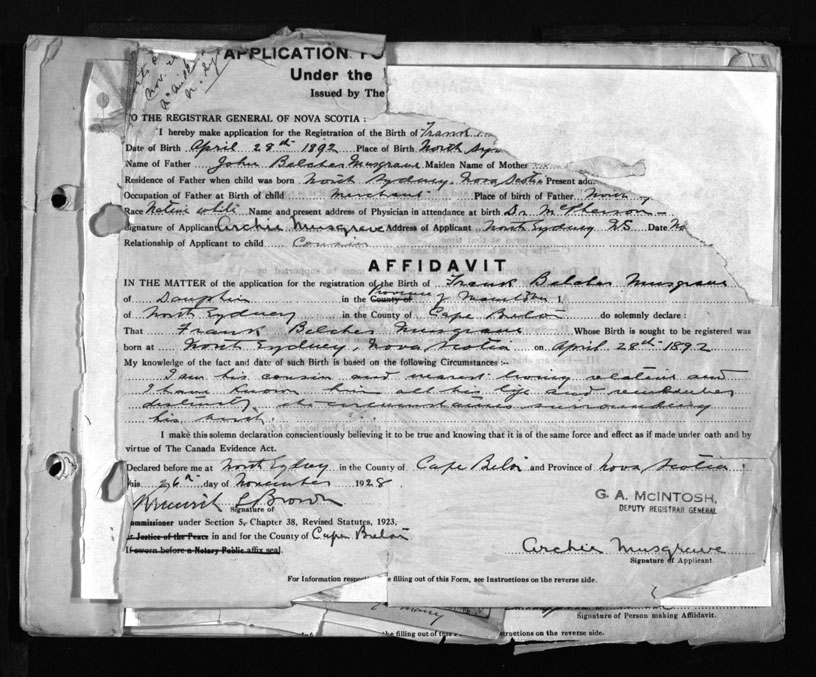 APPLICATION FO
Under the
Issued by The
TO THE REGISTRAR GENERAL OF NOVA SCOTIA :
I hereby make application for the Registration of the Birth of Frank
Date of Birth April 28th 1892 Place of Birth North Syd
Name of Father John Belcher Musgrave Maiden Name of Mother
Residence of Father when child was born North Sydney, Nova Scotia Present add
Occupation of Father at Birth of child Merchant Place of birth of Father North
Race Native white Name and present address of Physician in attendance at birth Dr. McPherson
Signature of Applicant Archie Musgrave Address of Applicant North Sydney NS Date No
Relationship of Applicant to child Cousin
AFFIDAVIT
IN THE MATTER of the application for the registration of the Birth of Frank Belcher Musgrave
of Dauphin in the County of Province of Manitoba I,
of North Sydney in the County of Cape Breton do solemnly declare :
That Frank Belcher Musgrave Whose Birth is sought to be registered was
born at North Sydney, Nova Scotia on April 28th 1892
My knowledge of the fact and date of such Birth is based on the following Circumstances :-
I am his cousin and nearest living relative and
I have known him all his life and remember
distinctly the circumstances surrounding
his birth.
I make this solemn declaration conscientiously believing it to be true and knowing that it is of the same force and effect as if made under oath and by
virtue of The Canada Evidence Act.
Declared before me at North Sydney in the County of Cape Breton and Province of Nova Scotia
this 26th day of November 1928
Brown
Signature of
G. A. McINTOSH,
DEPUTY REGISTRAR GENERAL
Commissioner under Section 5, Chapter 38, Revised Statutes, 1923,
or Justice of the Peace in and for the County of Cape Breton
If sworn before a Notary Public affix seal.
Archie Musgrave
Signature of Applicant.
For Information respect e filling out of this Form, see Instructions on the reverse side.
Signature of Person making Affidavit.
the filling out of this structions on the reverse side.